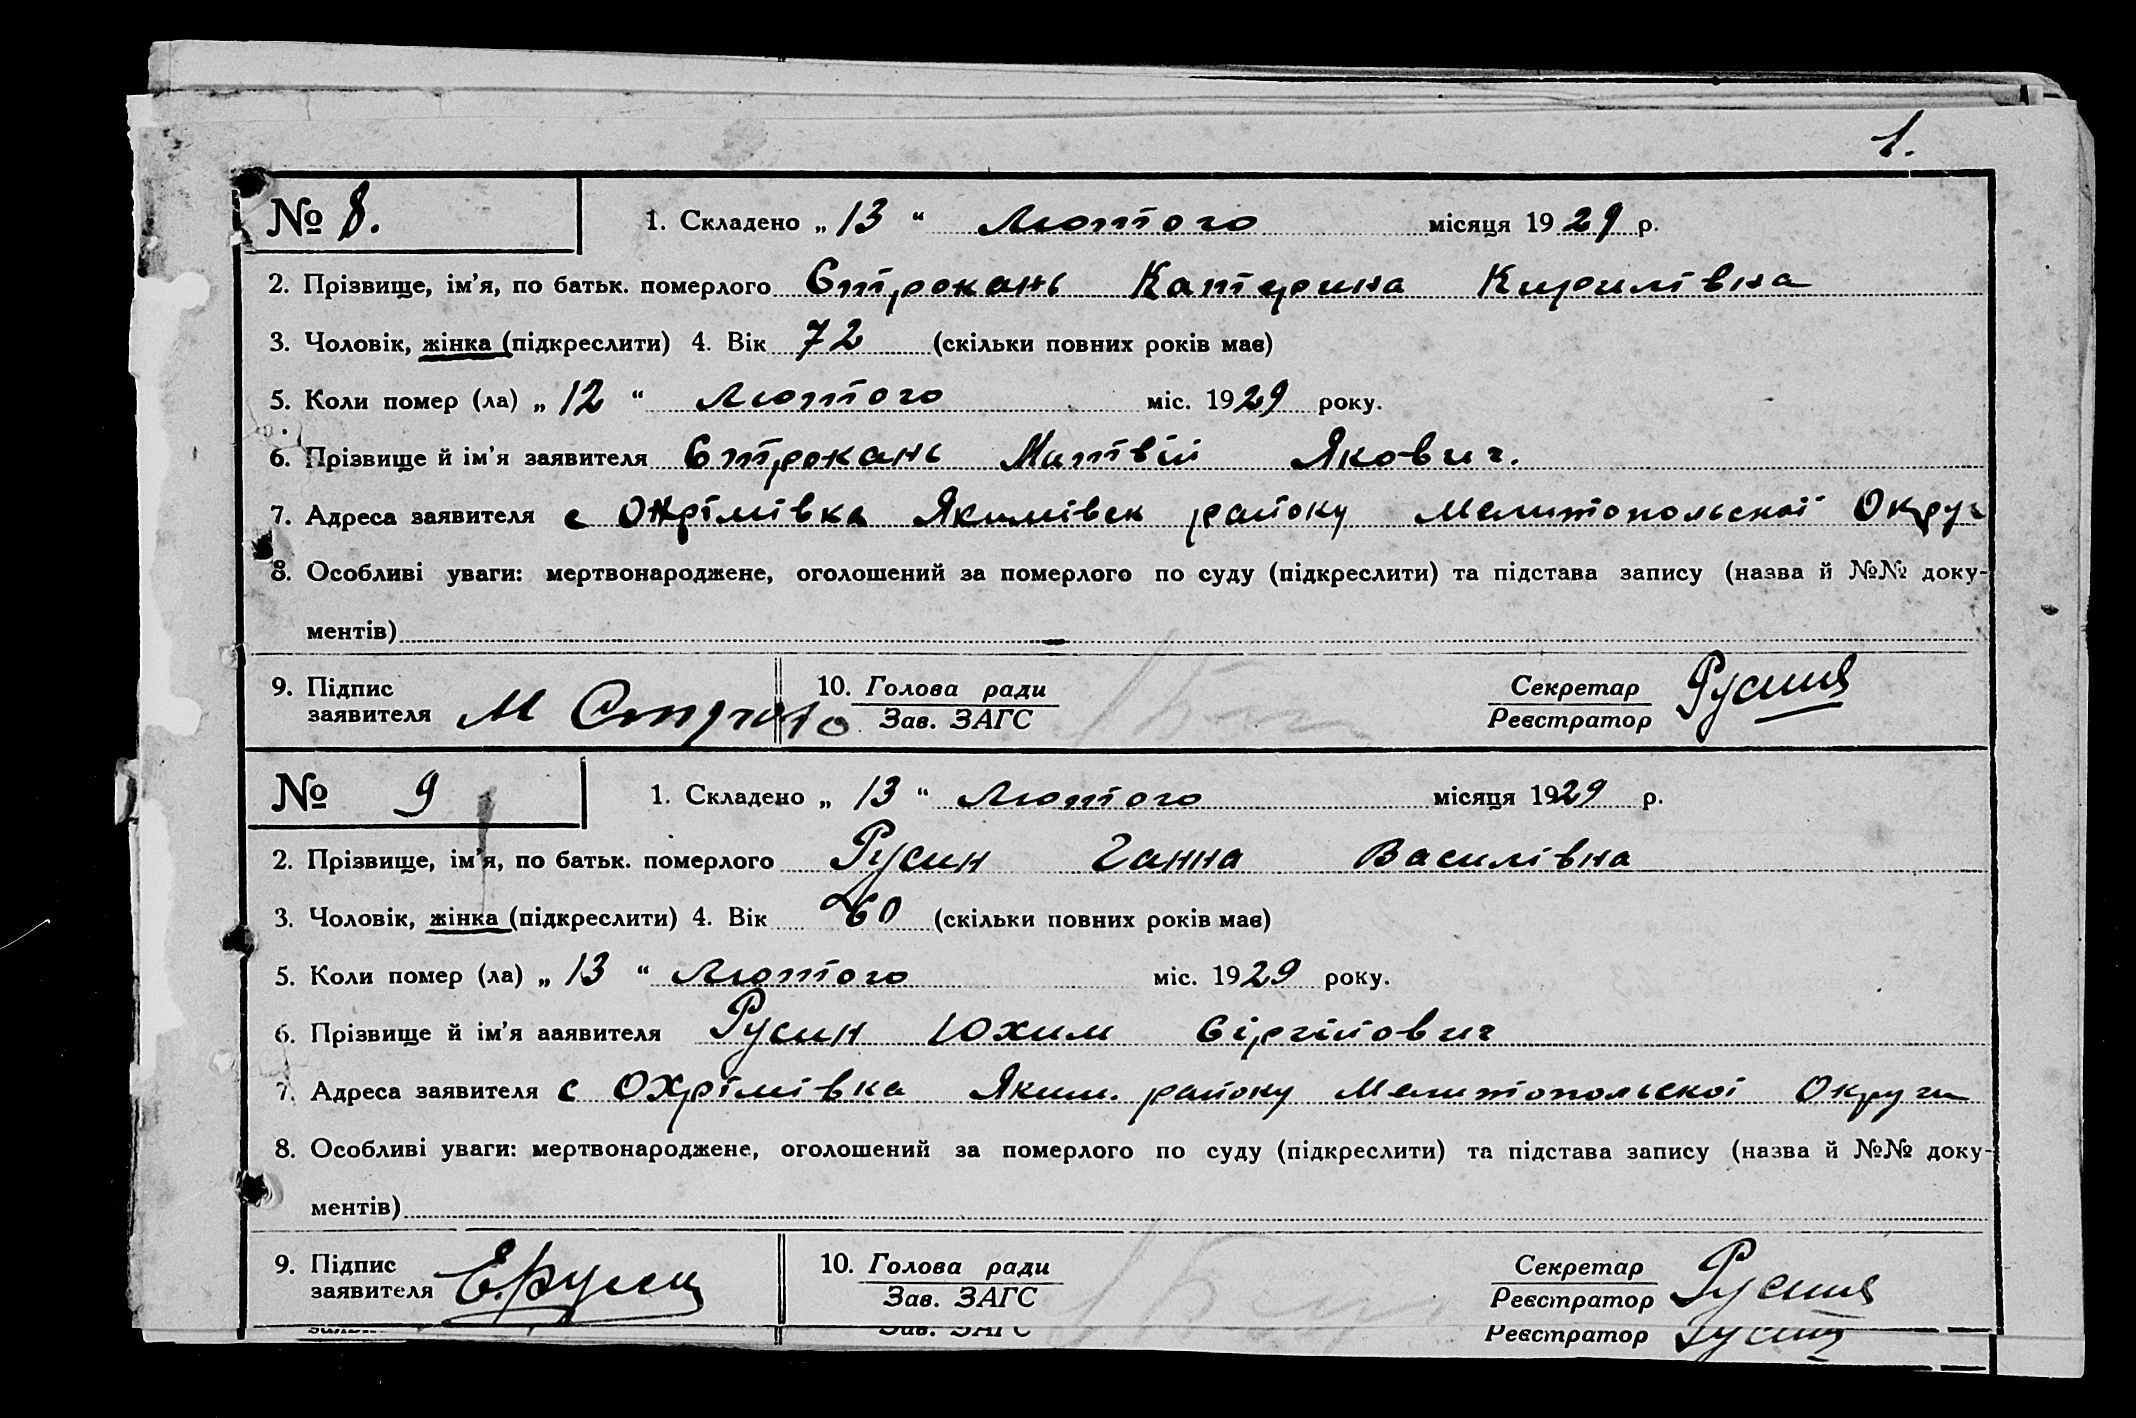 1.
№ 8. 1. Складено „ 13 “ Лютого місяця 1929 р.
2. Прізвище, ім’я, по батьк. померлого Строкань Катерина Кирилівна
3. Чоловік, жінка (підкреслити) 4. Вік 72 (скільки повних років має)
5. Коли помер (ла) „ 12 “ Лютого міс. 1929 року.
6. Прізвище й ім’я заявителя Строкань Матвій Якович.
7. Адреса заявителя с Охрімівка Якимівськ району Мелитопольскої Округ
8. Особливі уваги: мертвонароджене, оголошений за померлого по суду (підкреслити) та підстава запису (назва й №№ доку-
ментів)
9. Підпис заявителя М 10. Голова ради Зав. ЗАГС Секретар Реєстратор
№ 9 1. Складено „ 13 “ Лютого місяця 1929 р.
2. Прізвище, ім’я, по батьк. померлого Русин Ганна Василівна
3. Чоловік, жінка (підкреслити) 4. Вік 60 (скільки повних років має)
5. Коли помер (ла) „ 13 “ Лютого міс. 1929 року.
6. Прізвище й ім’я ааявителя Русин Юхим Сіргійович
7. Адреса заявителя с Охрімівка Яким. району Мелитопольскої Округи
8. Особливі уваги: мертвонароджене, оголошений за померлого по суду (підкреслити) та підстава запису (назва й №№ доку-
ментів)
9. Підпис заявителя Е. Русин 10. Голова ради Зав. ЗАГС Секретар Реєстратор
Зав. ЗАГС Реєстратор